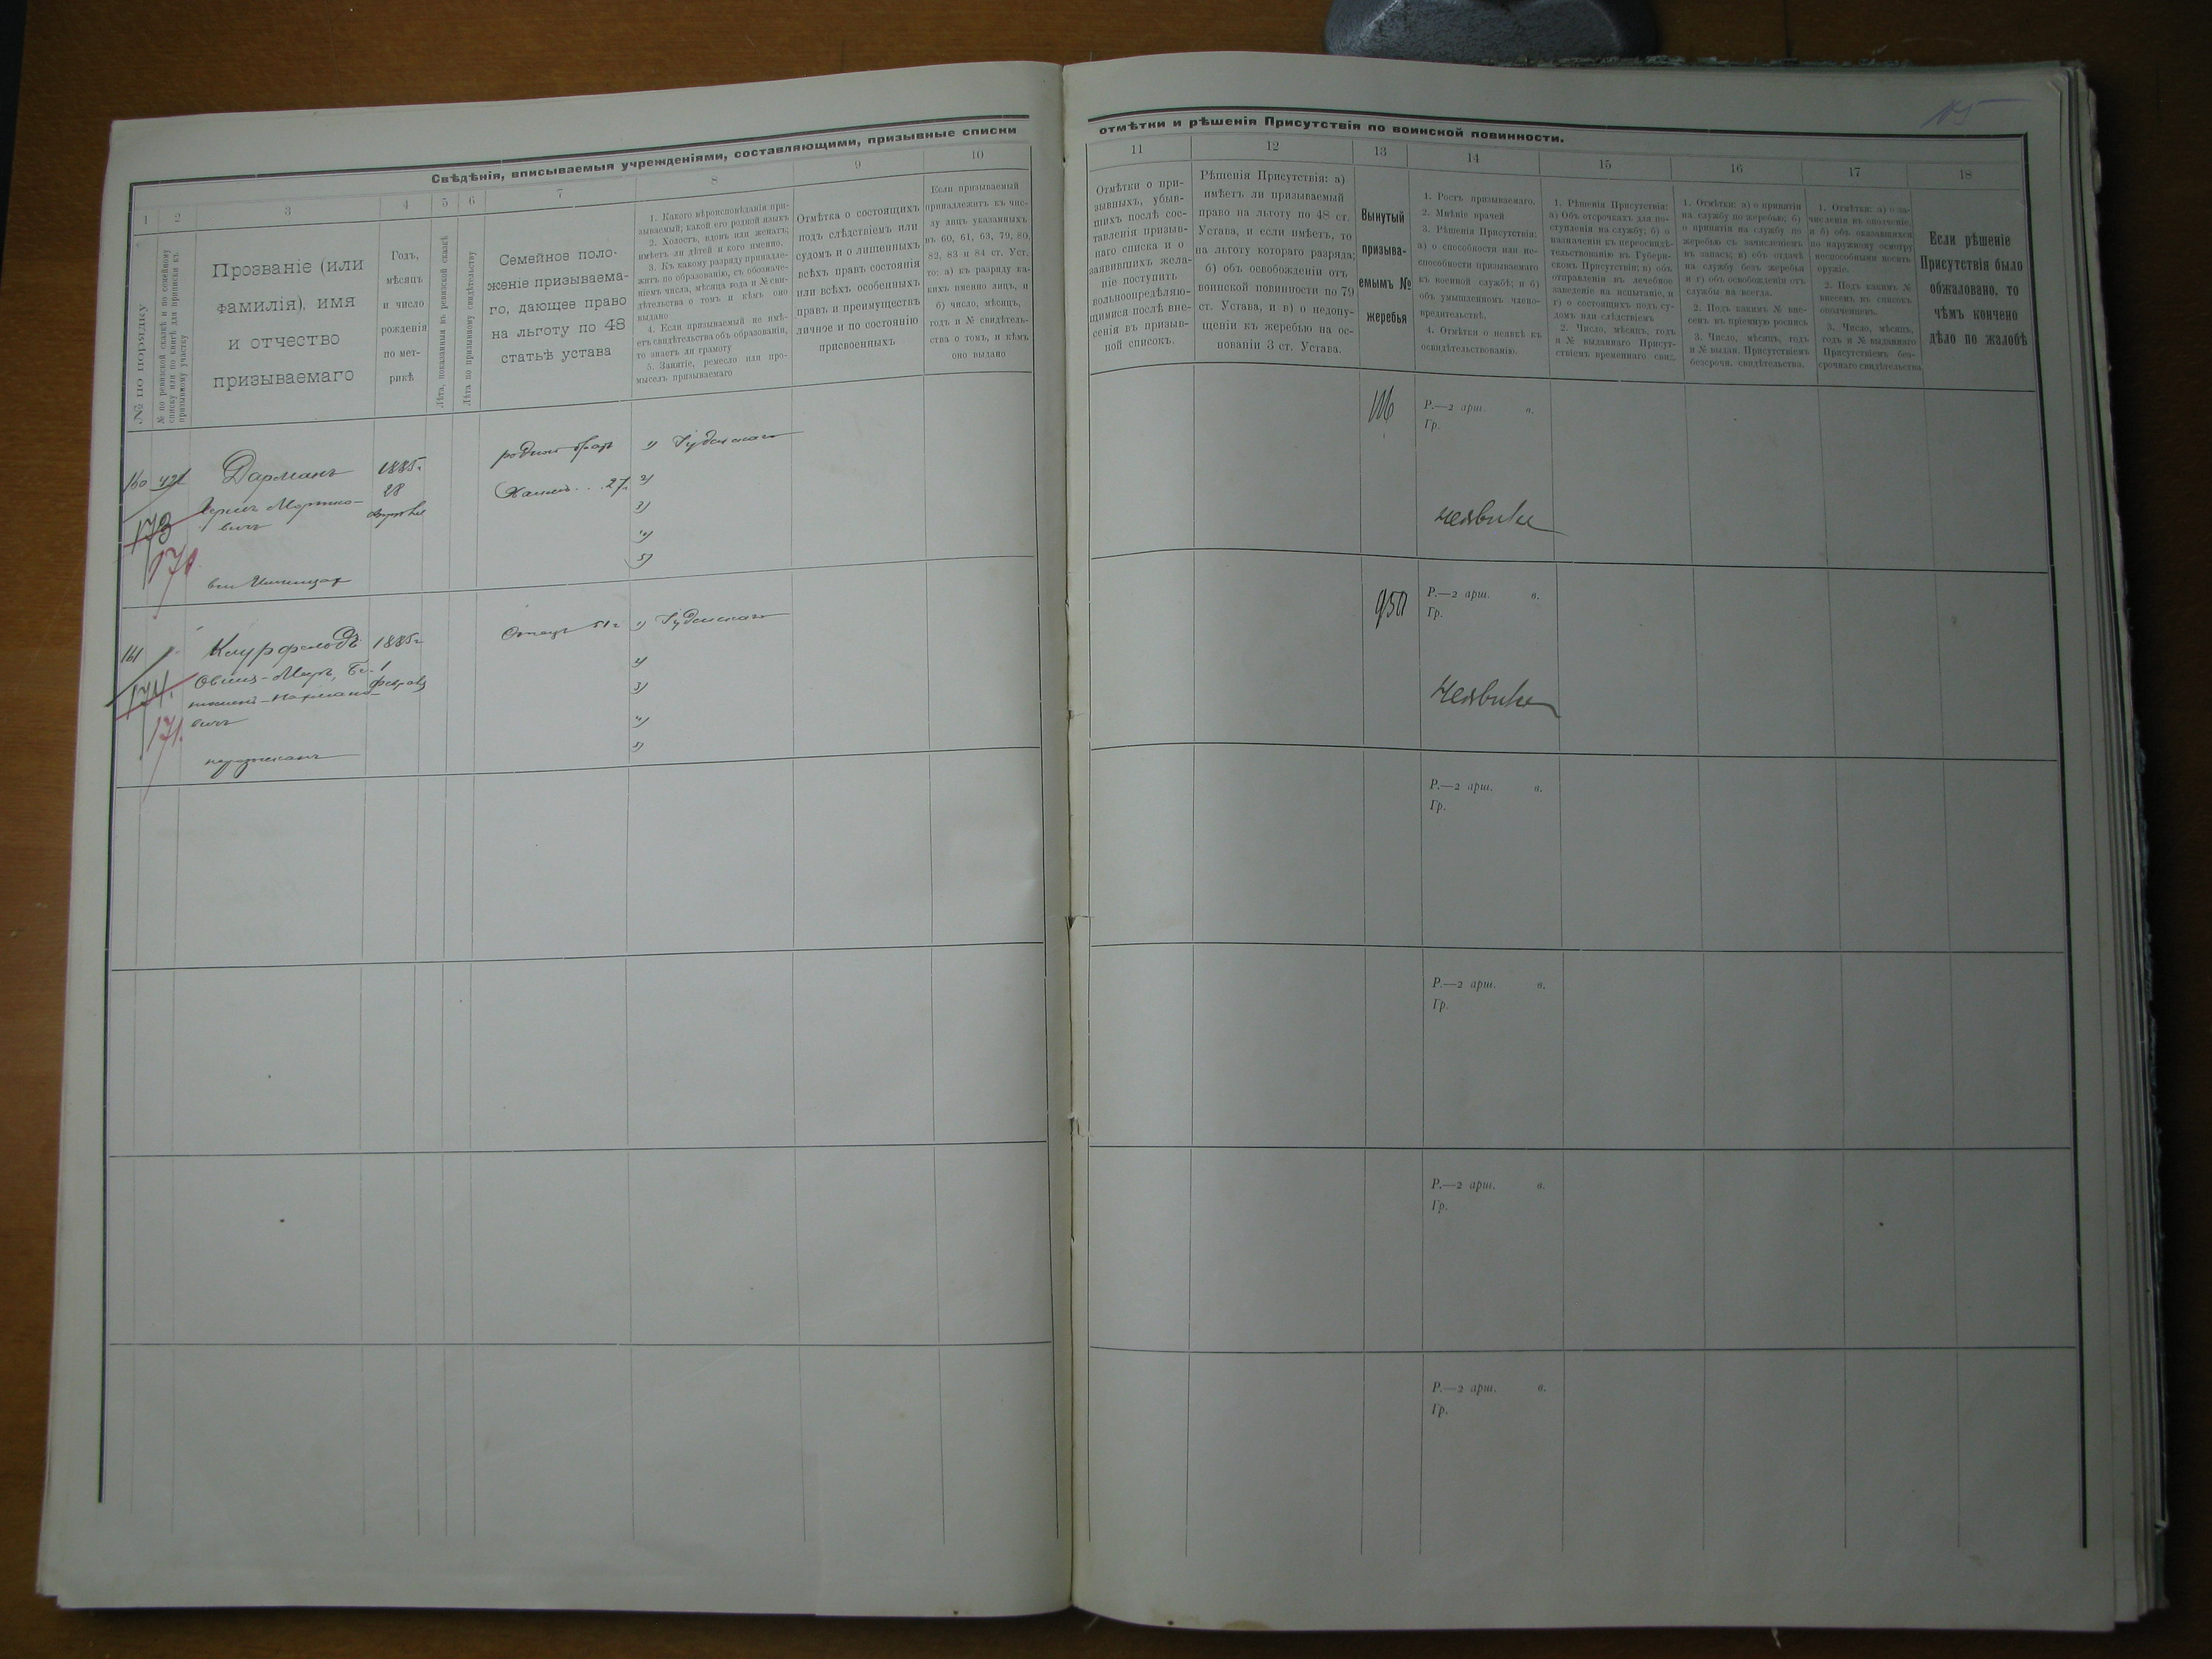 Свѣдѣнія, вписываемыя учрежденіями, составляющими, призывные списки
1 2 3 4 5 6 7 8 9 10
№ по порядку
№ по ревизской сказкѣ и по семейному
списку или по книгѣ для приписки къ
призывному участку
Прозваніе (или
фамилія), имя
и отчество
призываемаго
Годъ,
мѣсяцъ
и число
рожденія
по мет-
рикѣ
Лѣта, показанныя въ ревизской сказкѣ
Лѣта по призывному свидѣтельству
Семейное поло-
женіе призываема-
го, дающее право
на льготу по 48
статьѣ устава
1. Какого вѣроисповѣданія при-
зываемый; какой его родной языкъ
2. Холостъ, вдовъ или женатъ;
имѣетъ ли дѣтей и кого именно.
3. Къ какому разряду принадле-
житъ по образованію, съ обозначе-
ніемъ числа, мѣсяца года и № сви-
дѣтельства о томъ и кѣмъ оно
выдано
4. Если призываемый не имѣ-
етъ свидѣтельства объ образованіи,
то знаетъ ли грамоту
5. Занятіе, ремесло или про-
мыселъ призываемаго
Отмѣтка о состоящихъ
подъ слѣдствіемъ или
судомъ и о лишенныхъ
всѣхъ правъ состоянія
или всѣхъ особенныхъ
правъ и преимуществъ
личное и по состоянію
присвоенныхъ
Если призываемый
принадлежитъ къ чис-
лу лицъ указанныхъ
въ 60, 61, 63, 79, 80,
82, 83 и 84 ст. Уст.
то: а) къ разряду ка-
кихъ именно лицъ, и
б) число, мѣсяцъ,
годъ и № свидѣтель-
ства о томъ, и кѣмъ
оно выдано
160 421
173
170
Дарманъ
Мортко-
вичъ
1885г.
28
родной братъ
27.
1) Іудейскаго
2)
3)
4)
5)
161
174.
171.
1885г
1
Февраля
Отецъ 51г
1) Іудейскаго
2)
3)
4)
5)
15
отмѣтки и рѣшенія Присутствія по воинской повинности.
11 12 13 14 15 16 17 18
Отмѣтки о при-
зывныхъ, убыв-
шихъ послѣ сос-
тавленія призыв-
наго списка и о
заявившихъ жела-
ніе поступить
вольноопредѣляю-
щимися послѣ вне-
сенія въ призыв-
ной списокъ.
Рѣшенія Присутствія: а)
имѣетъ ли призываемый
право на льготу по 48 ст.
Устава, и если имѣетъ, то
на льготу котораго разряда;
б) объ освобожденіи отъ
воинской повинности по 79
ст. Устава, и в) о недопу-
щеніи къ жеребью на ос-
нованіи 3 ст. Устава.
Вынутый
призыва-
емымъ №
жеребья
1. Ростъ призываемаго.
2. Мнѣніе врачей
3. Рѣшенія Присутствія:
а) о способности или не-
способности призываемаго
къ военной службѣ; и б)
объ умышленномъ члено-
вредительствѣ.
4. Отмѣтки о неявкѣ къ
освидѣтельствованію.
1. Рѣшенія Присутствія:
а) Объ отсрочкахъ для по-
ступленія на службу; б) о
назначеніи къ переосвидѣ-
тельствованію въ Губерн-
скомъ Присутствіи; в) объ
отправленіи въ лечебное
заведеніе на испытаніе, и
г) о состоящихъ подъ су-
домъ или слѣдствіемъ
2. Число, мѣсяцъ, годъ
и № выданнаго Присут-
ствіемъ временнаго свид.
1. Отмѣтки: а) о принятіи
на службу по жеребью; б)
о принятіи на службу по
жеребью съ зачисленіемъ
въ запасъ; в) объ отдачѣ
на службу безъ жеребья
и г) объ освобожденіи отъ
службы на всегда.
2. Подъ какимъ № вне-
сенъ въ пріемную роспись
3. Число, мѣсяцъ, годъ
и № выдан. Присутствіемъ
безсрочн. свидѣтельства.
1. Отмѣтки: а) о за-
численіи въ ополченіе,
и б) объ оказавшихся
по наружному осмотру
неспособными носить
оружіе.
2. Подъ какимъ №
внесенъ въ списокъ
ополченцевъ.
3. Число, мѣсяцъ,
годъ и № выданнаго
Присутствіемъ без-
срочнаго свидѣтельства
Если рѣшеніе
Присутствія было
обжаловано, то
чѣмъ кончено
дѣло по жалобѣ
Р.—2 арш. в.
Гр.
неявился
950
Р.—2 арш. в.
Гр.
неявился
Р.—2 арш. в.
Гр.
Р.—2 арш. в.
Гр.
Р.—2 арш. в.
Гр.
Р.—2 арш. в.
Гр.